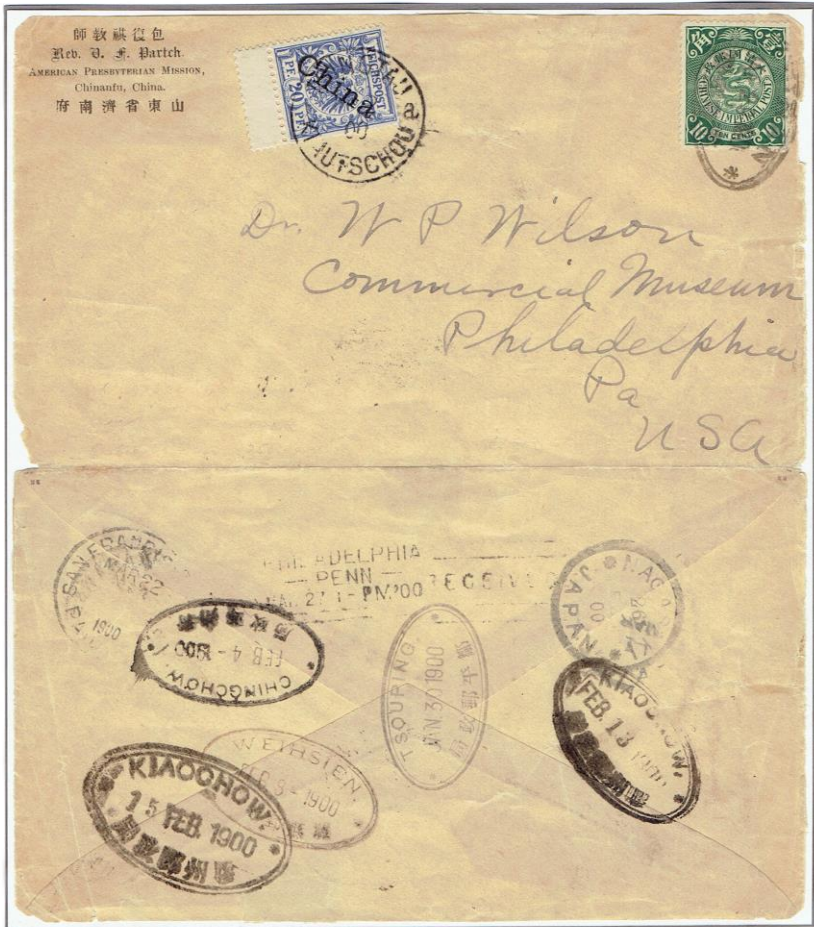 師教祺復包
Rev. V. F. Partch.
AMERICAN PRESBYTERIAN MISSION,
Chinanfu, China.
府南濟省東山
REICHSPOST
1 PF. 20 PF.
China
KIAUTSCHOU
00
角 壹
CHINESE IMPERIAL POST
10 TEN CENTS 10
Dr. W P Wilson
Commercial Museum
Philadelphia
Pa
USA
SAN FRANCISCO
MAR 22
1900
PHILADELPHIA
PENN
RECEIVED
PM '00
NAGASAKI
JAPAN
00
CHINGCHOW
FEB 4 - 1900
TSOUPING.
JAN 30 1900
KIAOCHOW.
FEB. 13 1900
WEIHSIEN.
FEB 8 - 1900
KIAOCHOW.
15 FEB. 1900